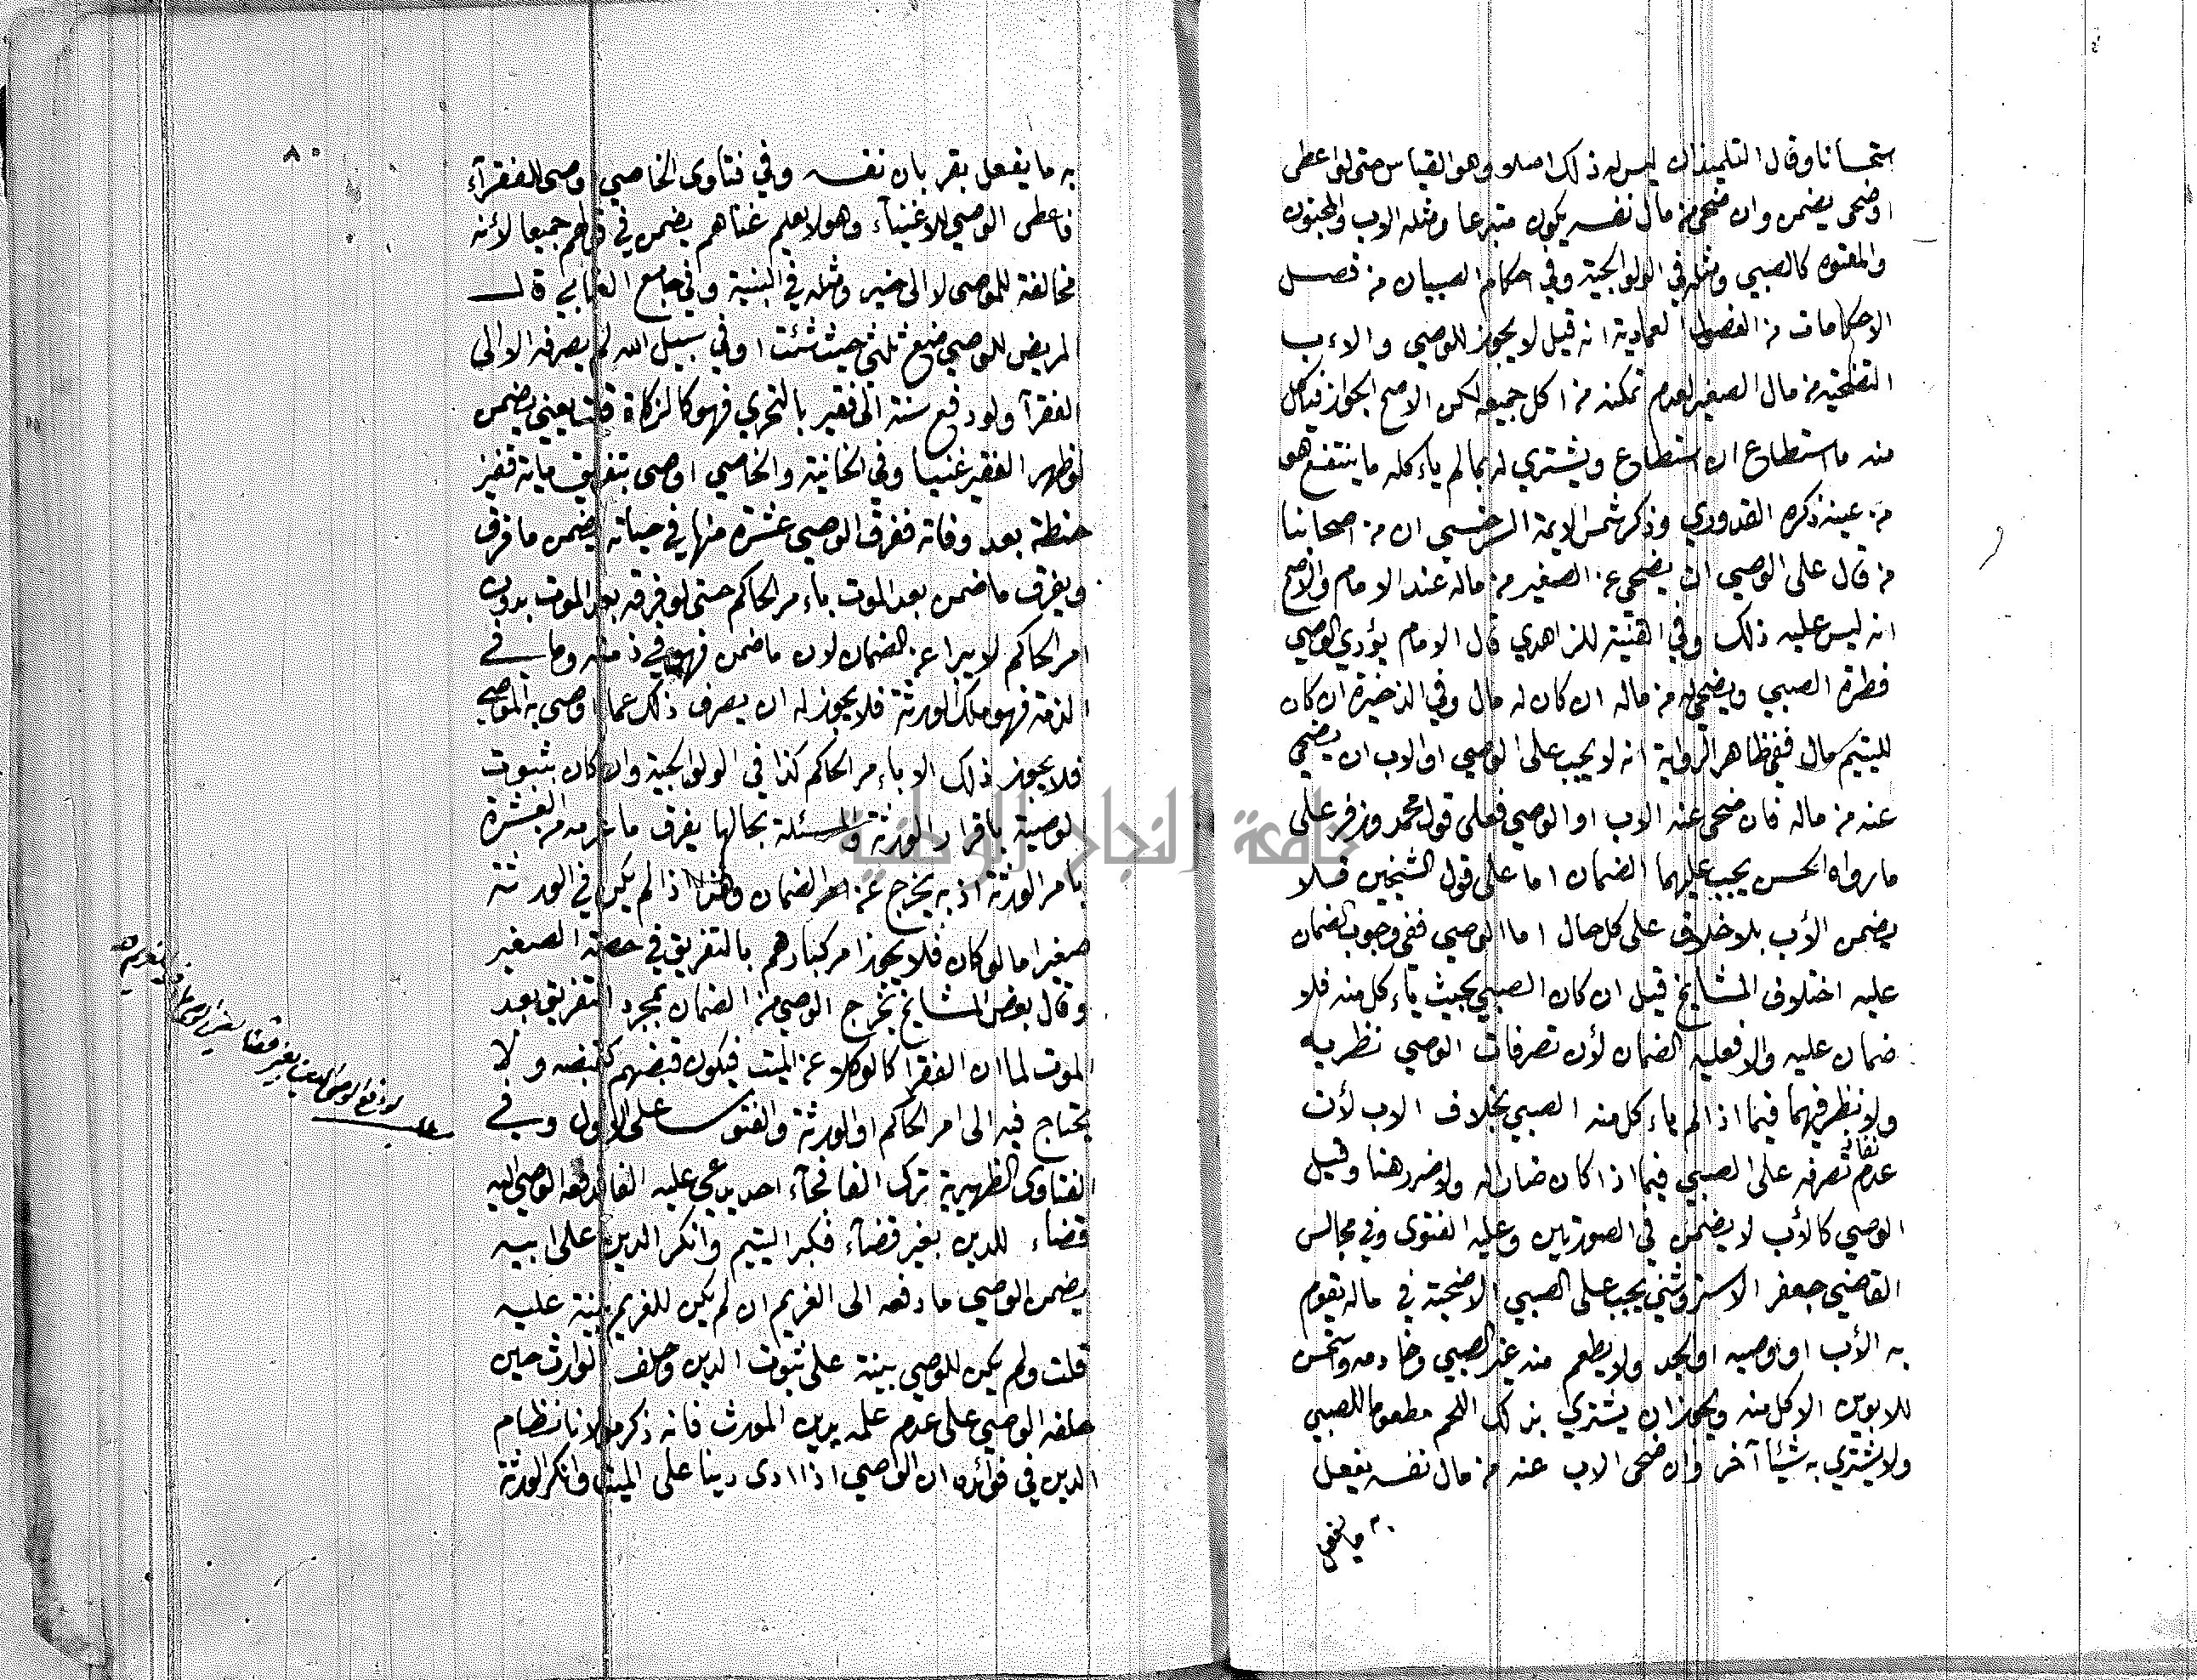 ستحسانا وقال التلميذان ليس له ذلك اصلا وهو القياس حتى لو اعطى
اوضحى يضمن وان ضحى من مال نفسه يكون متبرعا ومثله الاب والمجنون
والمعتوه كالصبي ومثله في الولوالجية وفي احكام الصبيان من فصل
الاحكامات من الفصول العمادية انه قيل لا يجوز للوصي والاءب
التضحية من مال الصغير لعدم تمكنه من اكل جميعه لكن الاصح الجواز فياكل
منه ما استطاع ان استطاع ويشتري له بما لم ياءكله ما ينتفع هو
من عينه ذكره القدوري وذكر شمس الايمة السرخسي ان من اصحابنا
من قال على الوصي ان يضحي عن الصغير من ماله عند الامام والاصح
انه ليس عليه ذلك وفي القنية للزاهدي قال الامام يؤدي الوصي
فطرة الصبي ويضحي له من ماله ان كان له مال وفي الذخيرة ان كان
لليتيم مال ففي ظاهر الرواية انه لا يجب على الوصي او الاب ان يضحي
عنه من ماله فان ضحى عنه الاب او الوصي فعلى قول محمد وزفر على
ما رواه الحسن يجب عليهما الضمان اما على قول الشيخين فلا
يضمن الأب بلا خلاف على كل حال اما الوصي ففي وجوب الضمان
عليه اختلاف المشايخ قيل ان كان الصبي بحيث ياءكل منه فلا
ضمان عليه والا فعليه الضمان لأن تصرفات الوصي نظريه
ولا نظر فيهما فيما اذا لم ياءكل منه الصبي بخلاف الاب لأن
نفاذ
عدم تصرفه على الصبي فيما اذا كان ضارا له ولا ضرر هنا وقيل
الوصي كالأب لا يضمن في الصورتين وعليه الفتوى وفي مجالس
القاضي جعفر الاستروشني يجب على الصبي الاضحية في ماله يقوم
به الأب او وصيه او الجد ولا يطعم منه غير الصبي وخادمه
للابوين الاكل منه ويجوز ان يشتري بذلك اللحم مطعوما للصبي
ولا يشتري به شيئا آخر وان ضحى الاب عنه من مال نفسه يفعل
به ما يفعل
٨٠
به ما يفعل بقربان نفسه وفي فتاوى الخاصي اوصى للفقرآء
فاعطى الوصي للاغنيآء وهو لا يعلم غناهم يضمن في قولهم جميعا لأنه
مخالفة للموصى لا الى خير ومثله في المنية وفي جامع العتابي قال
المريض للوصي ضع ثلثي حيث شئت او في سبيل الله لم يصرفه الا الى
الفقرآ ولو دفع سنة الى فقير بالتحري فهو كالزكاة قلت يعني يضمن
لو ظهر الفقير غنيا وفي الخانية والخاصي اوصى بتفريق ماية قفيز
حنطة بعد وفاته ففرق الوصي عشرة منها في حياته يضمن ما فرق
ويفرق ما ضمن بعد الموت باءمر الحاكم حتى لو فرقه بعد الموت بدون
امر الحاكم لا يبرا عن الضمان لان ما ضمن فهو في ذمته وما في
الذمة فهو ملك الورثة فلا يجوز له ان يصرف ذلك عما اوصى به الموصي
فلا يجوز ذلك الا باءمر الحاكم كذا في الولوالجية وان كان ثبوت
الوصية باقرار الورثة والمسئلة بحالها يفرق ما غرمه من العشرة
بامر الورثة اذ به يخرج عن امر الضمان وهذا اذا لم يكن في الورثة
صغير اما لو كان فلا يجوز امر كبارهم بالتفريق في حصة الصغير
وقال بعض المشايخ يخرج الوصي من الضمان بمجرد التفريق بعد
الموت لما ان الفقرا كالوكلا عن الميت فيكون قبضهم كقبضه ولا
يحتاج فيه الى امر الحاكم او الورثة والفتوى على الاول وفي
الفتاوى الظهيرية ترك الفا فجآء احد يدعي عليه الفا فدفعه الوصي اليه
قضاء للدين بغير قضآء فكبر اليتيم وانكر الدين على ابيه
يضمن الوصي ما دفعه الى الغريم ان لم يكن للغريم بينة عليه
قلت ولم يكن للوصي بينة على ثبوت الدين وحلف الوارث حين
حلفه الوصي على عدم علمه بدين المورث فانه ذكر مولانا نظام
الدين في فوائده ان الواصي اذا ادى دينا على الميت وانكر الورثة
لو دفع الوصي الدين بغير قضا